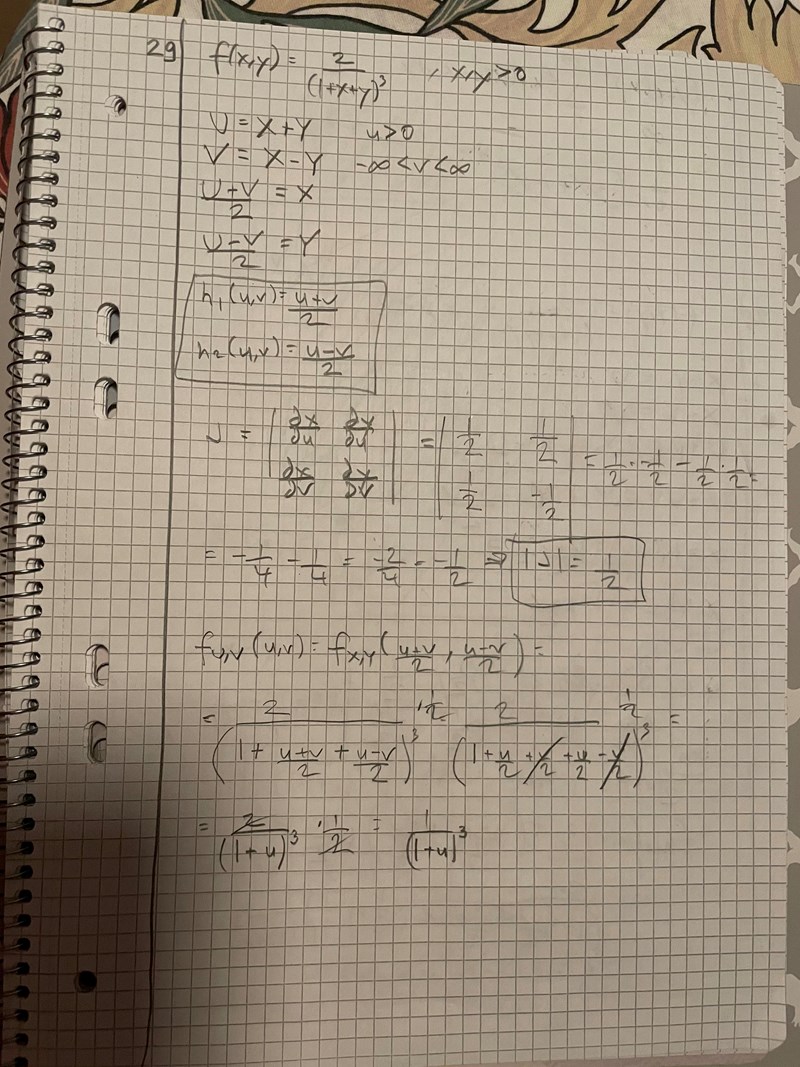 29) f(x,y) = 2/(1+x+y)³ , x,y>0
U = X+Y u>0
V = X-Y -∞<v<∞
U+V/2 = X
U-V/2 = Y
h₁(u,v) = u+v/2
h₂(u,v) = u-v/2
J = | ∂x/∂u ∂y/∂u ; ∂x/∂v ∂y/∂v | = | 1/2 1/2 ; 1/2 -1/2 | = 1/2 · -1/2 - 1/2 · 1/2 =
= -1/4 - 1/4 = -2/4 = -1/2 ⇒ |J| = 1/2
fU,V(u,v) = fX,Y(u+v/2, u-v/2) =
= 2/(1 + u+v/2 + u-v/2)³ · 1/2 = 2/(1+u/2+v/2+u/2-v/2)³ 1/2 =
= 2/(1+u)³ · 1/2 = 1/(1+u)³